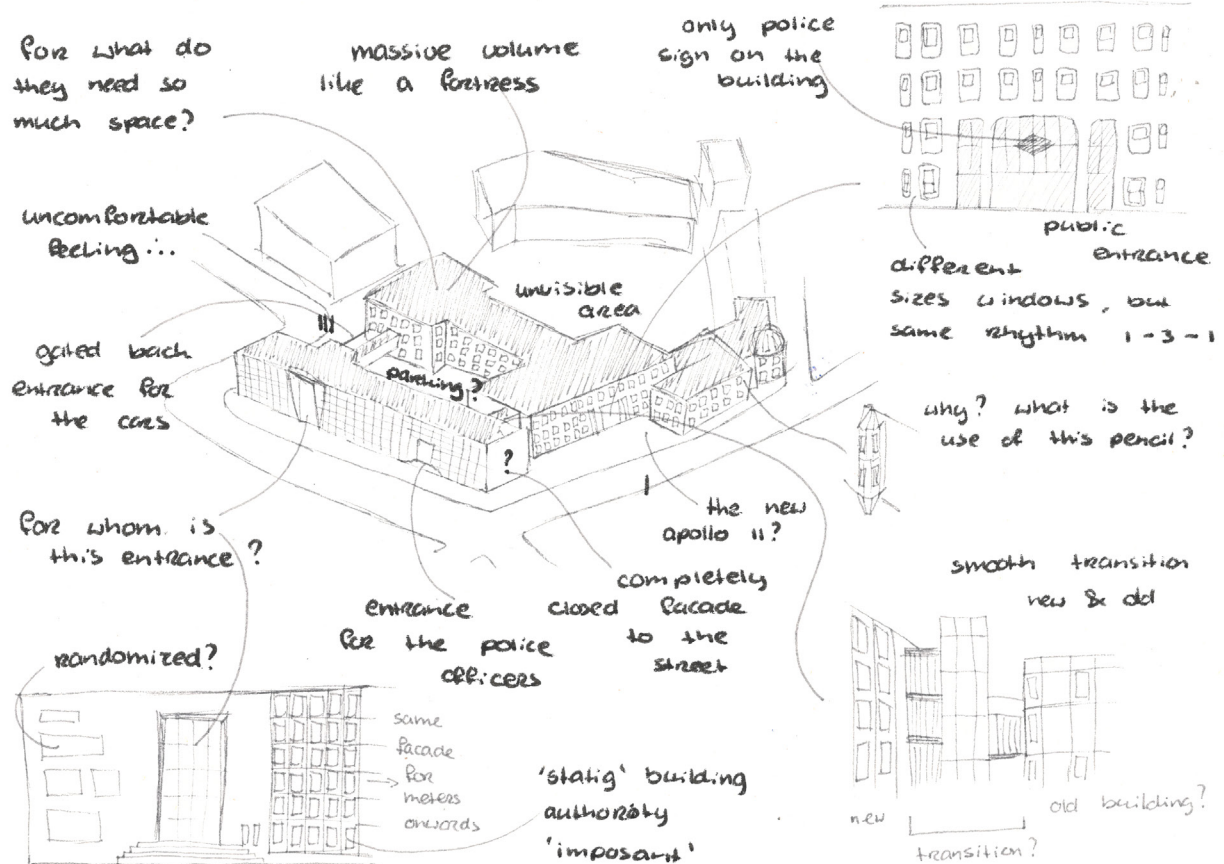 for what do
they need so
much space?
massive volume
like a fortress
only police
sign on the
building
public
entrance
uncomfortable
feeling ...
unvisible
area
different
sizes windows, but
same rhythm 1-3-1
III
gated back
entrance for
the cars
parking?
why? what is the
use of this pencil?
?
I
the new
apollo 11?
for whom is
this entrance?
smooth transition
new & old
completely
closed facade
to the
street
entrance
for the police
officers
randomized?
same
facade
for
meters
onwords
'statig' building
authority
'imposant'
new
old building?
transition?